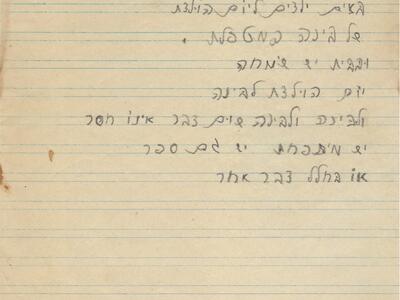 באים ילדים ליום הולדת
של בינה המטפלת.
ובבית יש שמחה
יום הולדת לבינה
ולבינה ולבינה שום דבר אינו חסר
יש מטפחת יש גם ספר
או בכלל דבר אחר